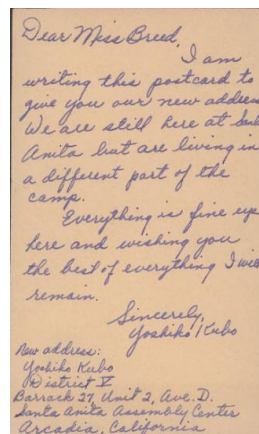 Dear Miss Breed,
I am
writing this postcard to
give you our new address
We are still here at Santa
Anita but are living in
a different part of the
camp.
Everything is fine up
here and wishing you
the best of everything I will
remain.
Sincerely,
Yoshiko Kubo
New address:
Yoshiko Kubo
District V
Barrack 27, Unit 2, Ave. D.
Santa Anita Assembly Center
Arcadia, California